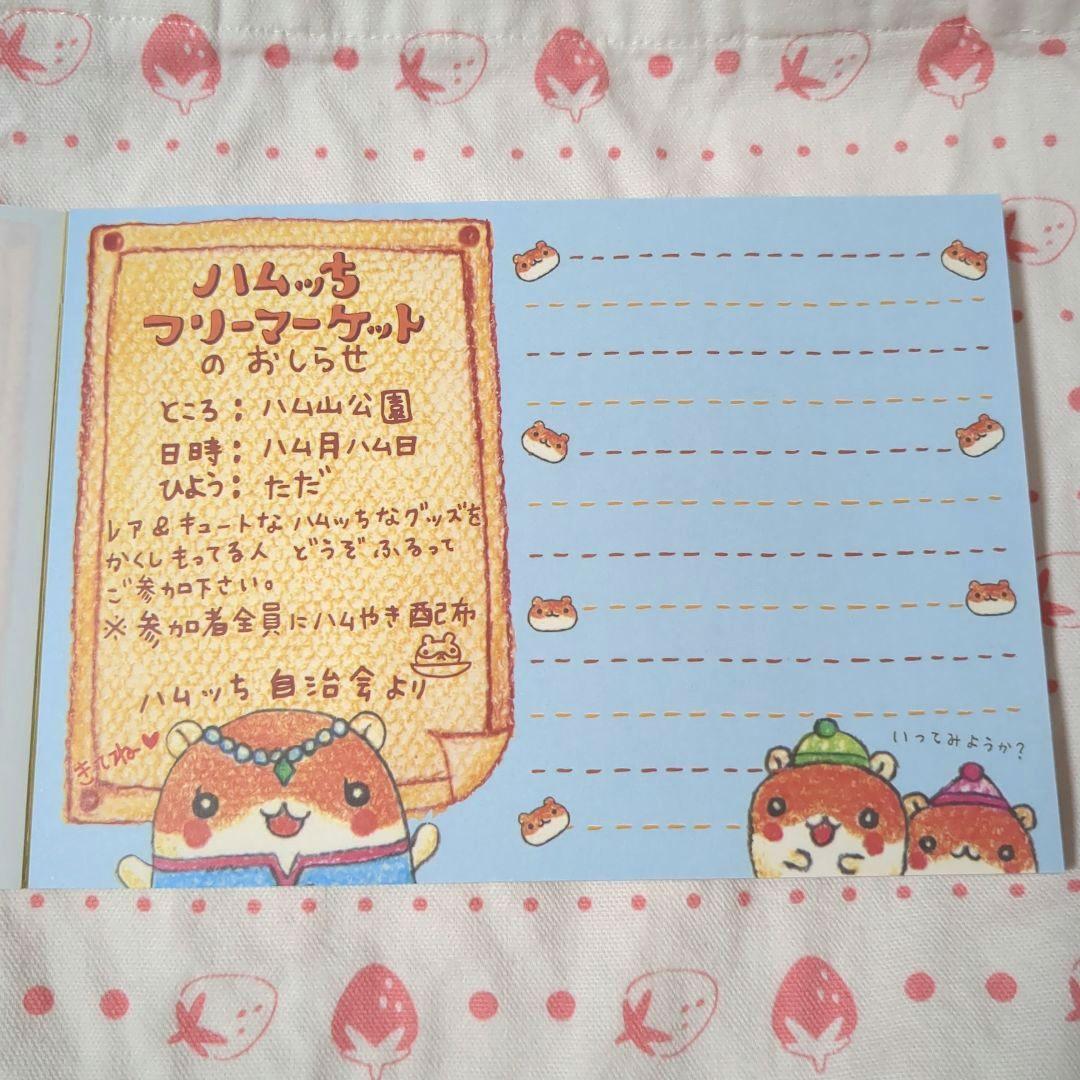 ハムッち
フリーマーケット
のおしらせ
ところ：ハム山公園
日時：ハム月ハム日
ひよう：ただ
レア＆キュートなハムッちなグッズを
かくしもってる人 どうぞふるって
ご参加下さい。
※参加者全員にハムやき配布
ハムッち 自治会より
きてねー♥
いってみようか？